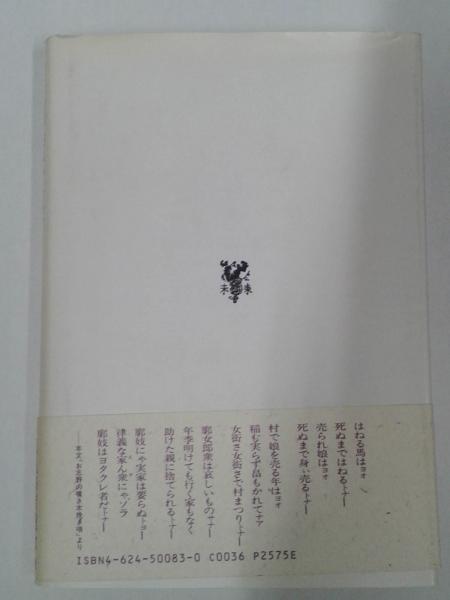 未来
はねる馬はヨオ
死ぬまではねるトナー
売られ娘はヨオ
死ぬまで身ぃ売るトナー
村で娘を売る年はヨオ
稲も実らず畠もかれてナァ
女衒さ女衒さで村まつりトナー
廓女郎衆は哀しいものサナー
年季明けても行く家もなく
助けた親に捨てられるトナー
廓妓にゃ実家は要らぬトヨー
律義な家ん衆にゃ、ソラ
廓妓はヨタクレ者だトナー
本文、お志野の「囁き木挽き唄」より
ISBN4-624-50083-0 C0036 P2575E